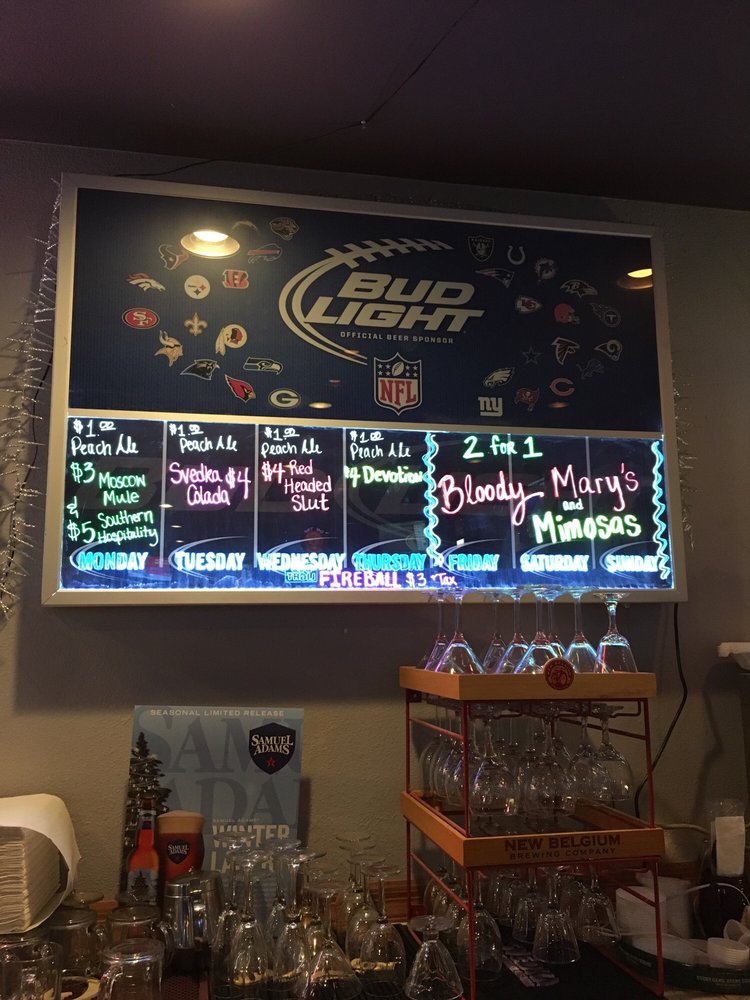 BUD
LIGHT
OFFICIAL BEER SPONSOR
NFL
ny
G
SF
$1.00
Peach Ale
$3 Moscow
Mule
&
$5 Southern
Hospitality
MONDAY
$1.00
Peach Ale
Svedka $4
Colada
TUESDAY
$1.00
Peach Ale
$4 Red
Headed
Slut
WEDNESDAY
$1.00
Peach Ale
$4 Devotion
THURSDAY
2 for 1
Bloody Mary's
and
Mimosas
FRIDAY
SATURDAY
SUNDAY
FIREBALL $3 +Tax
SEASONAL LIMITED RELEASE
SAMUEL
ADAMS
SAMUEL ADAMS
WINTER
LAGER
SAMUEL
ADAMS
NEW BELGIUM
BREWING COMPANY